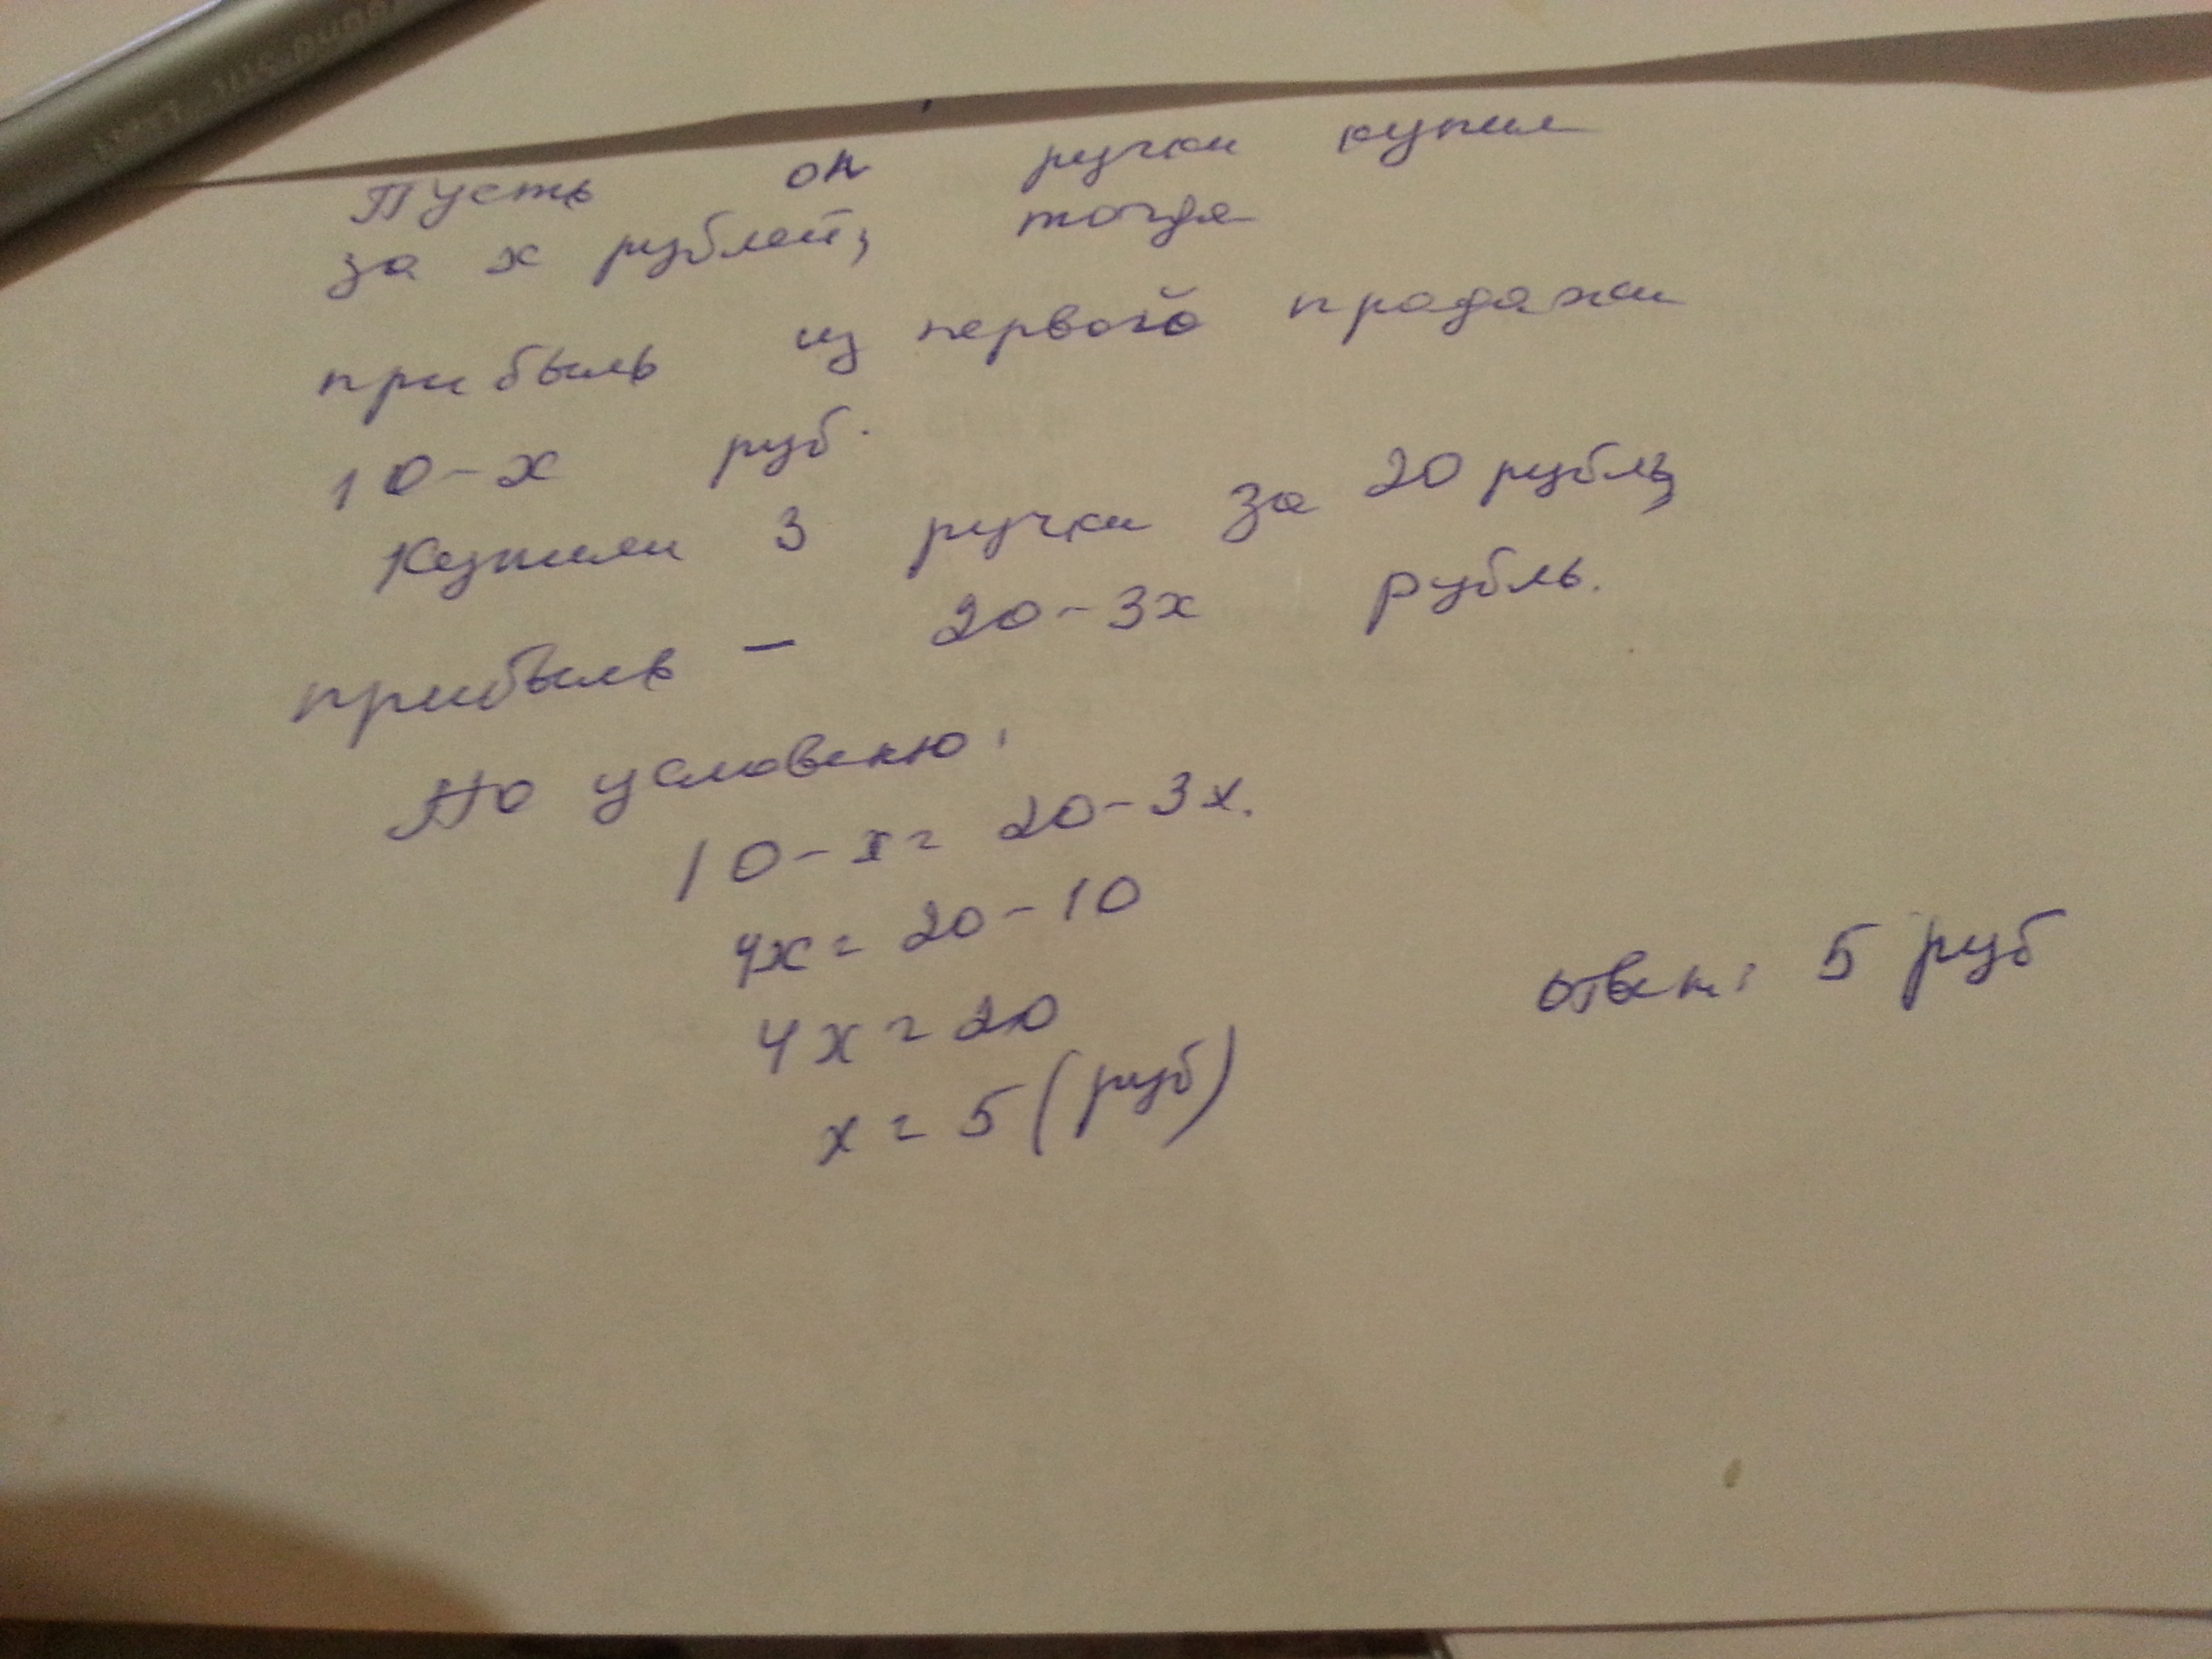 Пусть он ручки купил
за x рублей, тогда
прибыль из первой продажи
10-x руб.
Купили 3 ручки за 20 рубль,
прибыль - 20-3x рубль.
По условию:
10-x= 20-3x.
4x= 20-10
4x=20
x=5(руб)
ответ: 5 руб